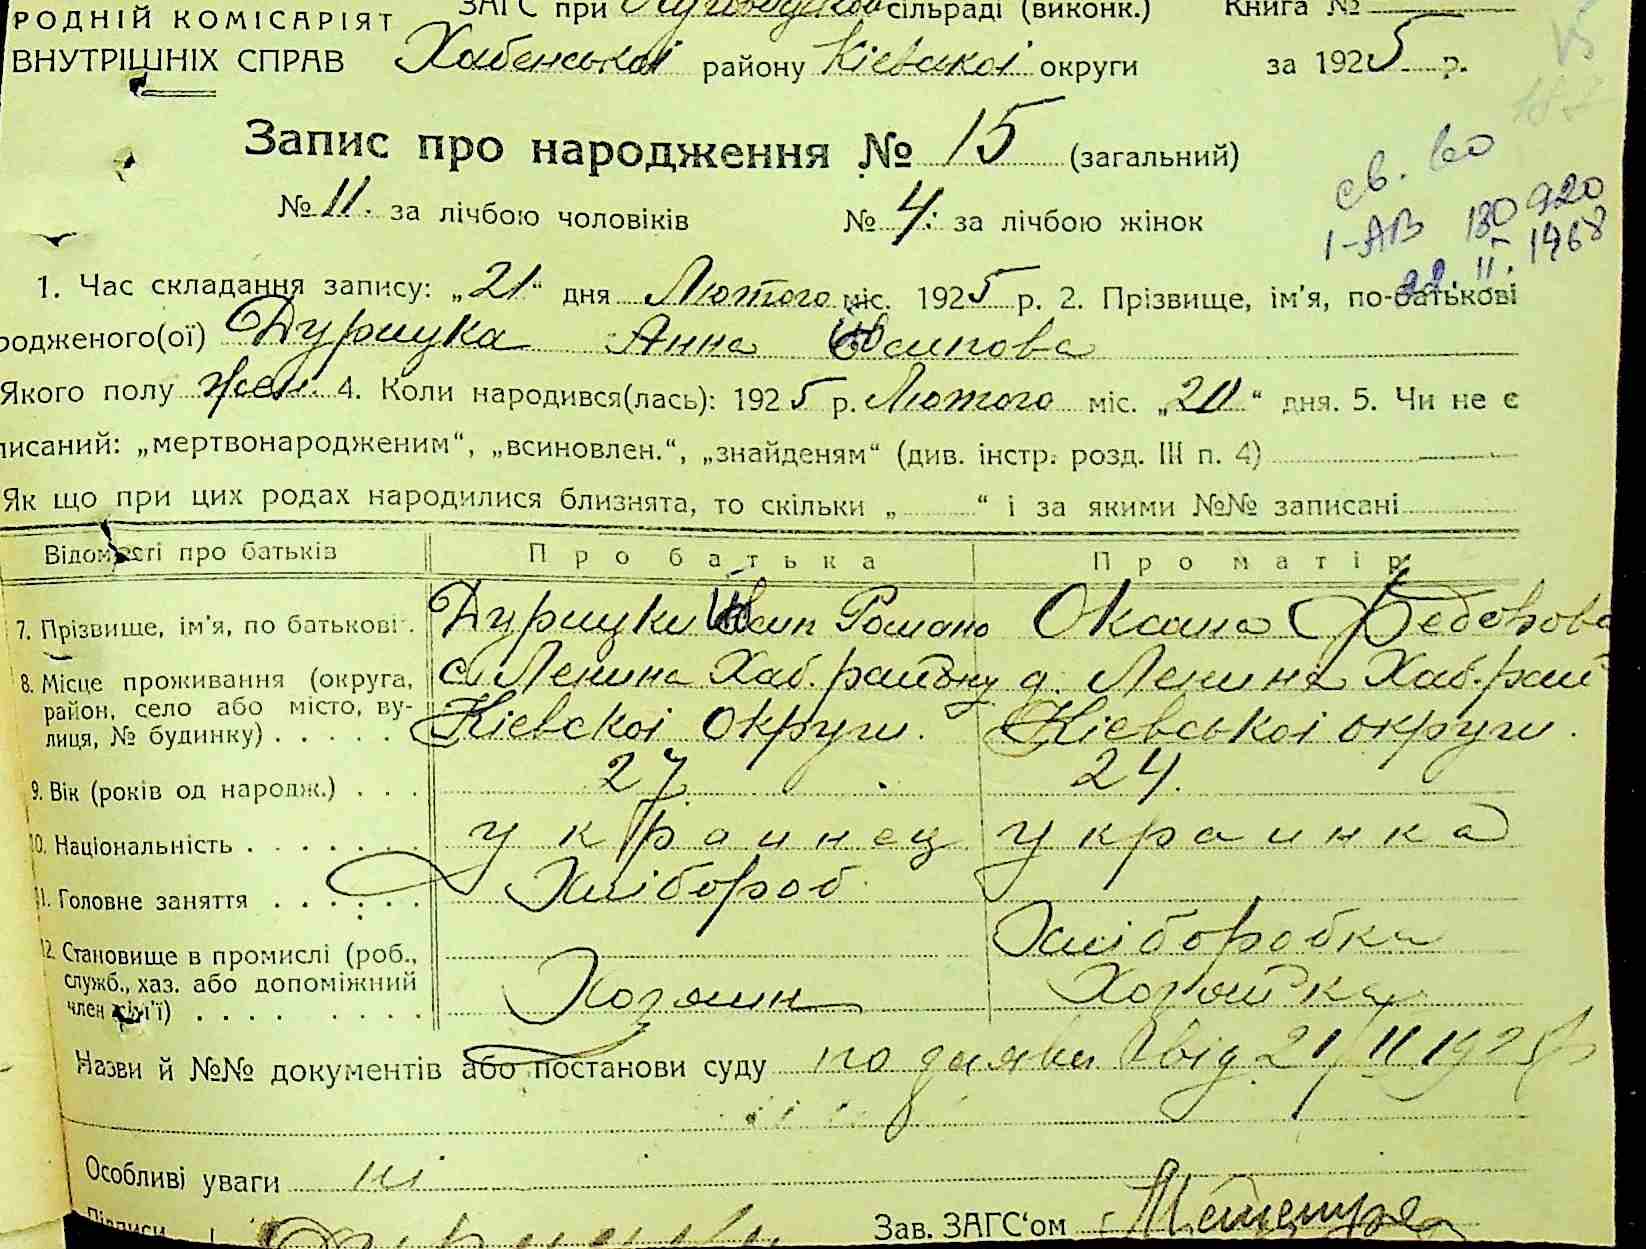 РОДНІЙ КОМІСАРІЯТ
ВНУТРІШНІХ СПРАВ
ЗАГС при сільраді (виконк.) Книга №
Хабенської району Кіевскоі округи за 1925 р.
Запис про народження № 15 (загальний)
№ 11. за лічбою чоловіків № 4. за лічбою жінок
св. во
1-АВ 130920
22.II.1968
1. Час складання запису: „21“ дня Лютого міс. 1925 р. 2. Прізвище, ім'я, по-батькові
родженого(ої) Дурицка Анна Осипова
Якого полу жен. 4. Коли народився(лась): 1925 р. Лютого міс. „20“ дня. 5. Чи не є
писаний: „мертвонародженим“, „всиновлен.“, „знайденям“ (див. інстр. розд. III п. 4)
Як що при цих родах народилися близнята, то скільки „ “ і за якими №№ записані
Відомості про батьків Про батька Про матір
7. Прізвище, ім'я, по батькові Дурицки Осип Романо Оксана Федорова
8. Місце проживання (округа, район, село або місто, вулиця, № будинку) с. Ленина Хаб. району Кіевскоі округи. д. Ленина Хаб. рай Кіевськоі округи.
9. Вік (років од народж.) 27 24.
10. Національність украинец украинка
11. Головне заняття Хлібороб Хліборобка
12. Становище в промислі (роб., служб., хаз. або допоміжний член сім'ї) Хозяин Хозяйка
Назви й №№ документів або постанови суду по заяви від 21/II 1925 р
Особливі уваги ні
Підписи Зав. ЗАГС'ом